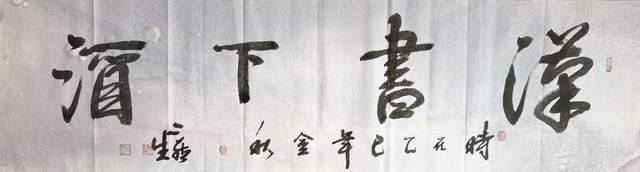 漢書下酒
時在乙巳年金秋